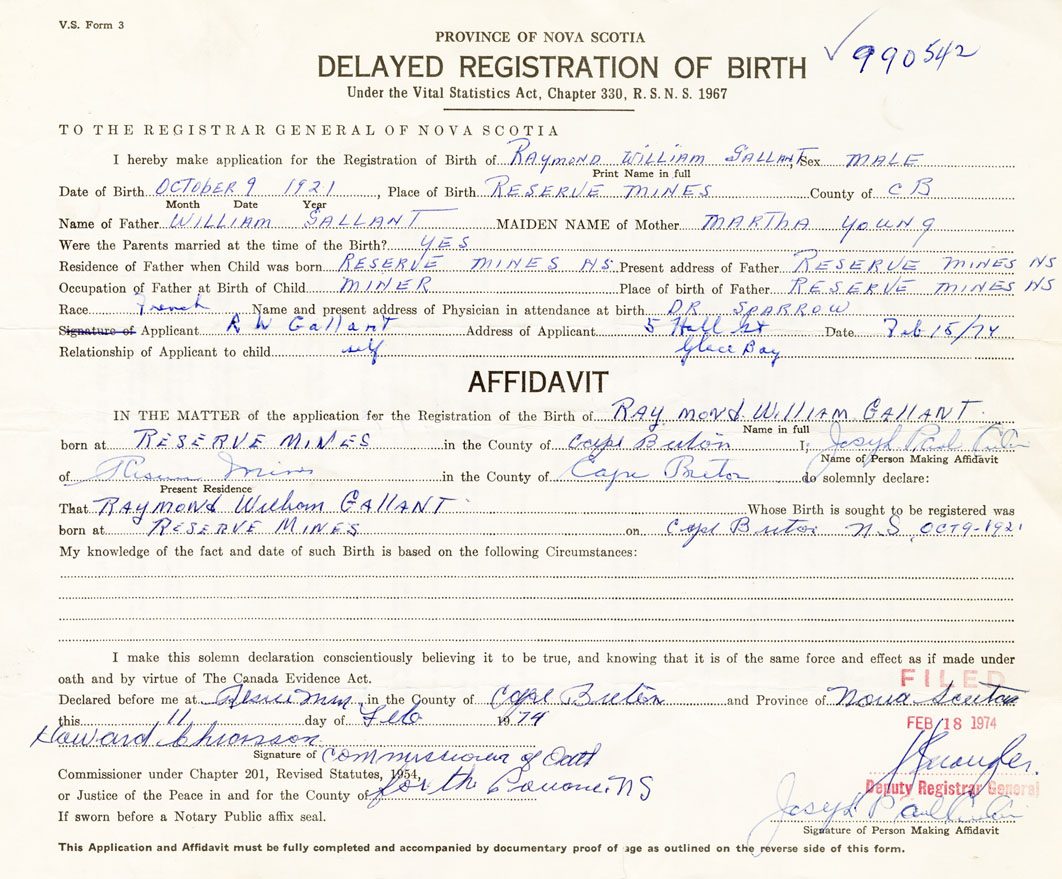 V.S. Form 3
PROVINCE OF NOVA SCOTIA
990542
DELAYED REGISTRATION OF BIRTH
Under the Vital Statistics Act, Chapter 330, R. S. N. S. 1967
TO THE REGISTRAR GENERAL OF NOVA SCOTIA
I hereby make application for the Registration of Birth of RAYMOND WILLIAM GALLANT, Sex MALE
Print Name in full
Date of Birth OCTOBER 9 1921, Place of Birth RESERVE MINES County of C B
Month Date Year
Name of Father WILLIAM GALLANT MAIDEN NAME of Mother MARTHA YOUNG
Were the Parents married at the time of the Birth? YES
Residence of Father when Child was born RESERVE MINES NS. Present address of Father RESERVE MINES NS
Occupation of Father at Birth of Child MINER Place of birth of Father RESERVE MINES NS
Race French Name and present address of Physician in attendance at birth DR SPARROW
Signature of Applicant R W Gallant Address of Applicant 5 Hall St Date Feb 15/74
Relationship of Applicant to child self Glace Bay
AFFIDAVIT
IN THE MATTER of the application for the Registration of the Birth of RAYMOND WILLIAM GALLANT
Name in full
born at RESERVE MINES in the County of Cape Breton I, Joseph Paul
Name of Person Making Affidavit
of Mines in the County of Cape Breton do solemnly declare:
Present Residence
That RAYMOND William GALLANT Whose Birth is sought to be registered was
born at RESERVE MINES on Cape Breton N.S, OCT 9-1921
My knowledge of the fact and date of such Birth is based on the following Circumstances:
I make this solemn declaration conscientiously believing it to be true, and knowing that it is of the same force and effect as if made under
oath and by virtue of The Canada Evidence Act.
FILED
Declared before me at in the County of Cape Breton and Province of Nova Scotia
this 11 day of Feb 1974
FEB 18 1974
Howard
Signature of Commissioner of Oath
Commissioner under Chapter 201, Revised Statutes, 1954,
or Justice of the Peace in and for the County of for the NS
Deputy Registrar General
If sworn before a Notary Public affix seal.
Joseph Paul
Signature of Person Making Affidavit
This Application and Affidavit must be fully completed and accompanied by documentary proof of age as outlined on the reverse side of this form.